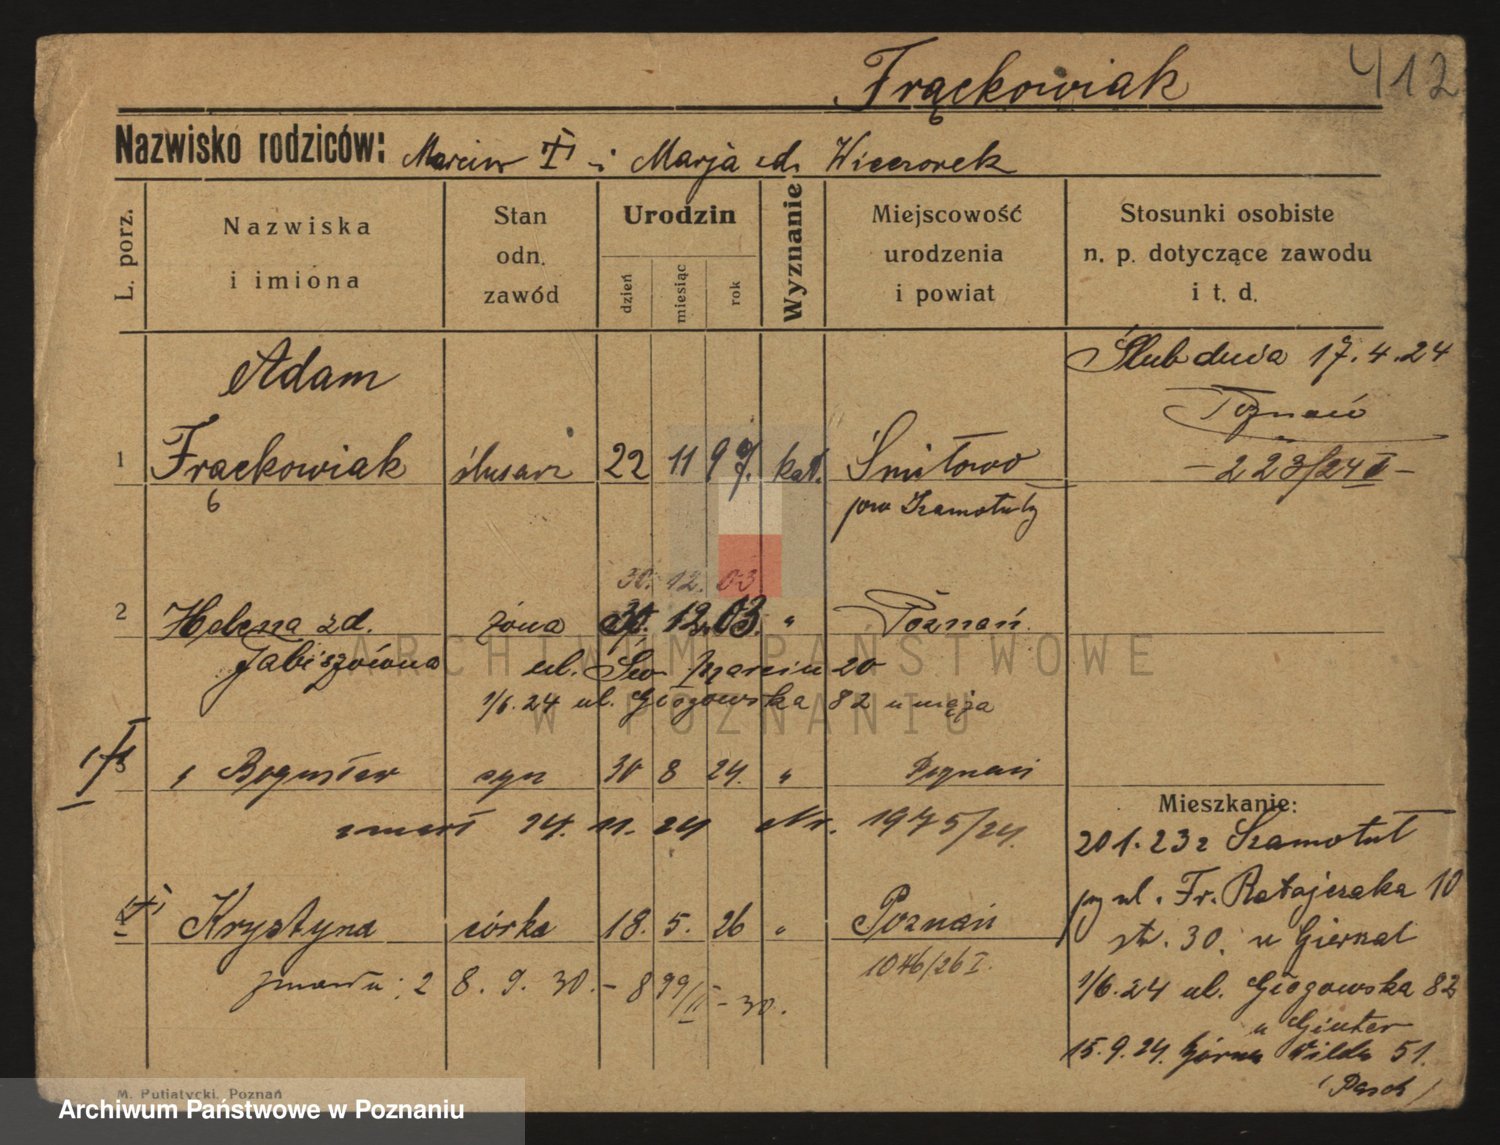 Frąckowiak
412
Nazwisko rodziców: Marcin i Marja zd. Wieczorek
L. porz.
Nazwiska
i imiona
Stan
odn.
zawód
Urodzin
dzień
miesiąc
rok
Wyznanie
Miejscowość
urodzenia
i powiat
Stosunki osobiste
n. p. dotyczące zawodu
i t. d.
Ślub dnia 17.4.24
Poznań
Adam
1 Frąckowiak ślusarz 22 11 97. kat. Śmiłowo
pow Szamotuły
30. 12. 03
2 Helena zd. żona 30. 12. 03. " Poznań
ul. Św Marcin 20
1/6.24 ul. Głogowska 82 u męża
3 Bogusław syn 30 8 24. " Poznań
zmarł 24. 11. 24 Nr. 1975/24.
Krystyna córka 18. 5. 26 " Poznań
1046/26 I.
8. 9. 30.
Mieszkanie:
20.1.23 z Szamotuł
ul. Fr. Ratajczaka 10
30. u
1/6.24 ul. Głogowska 82
u Ginter
15.9.24. Górna Wilda 51.
(Pasch)
M. Putiatycki, Poznań
ARCHIWUM PAŃSTWOWE
W POZNANIU
Archiwum Państwowe w Poznaniu